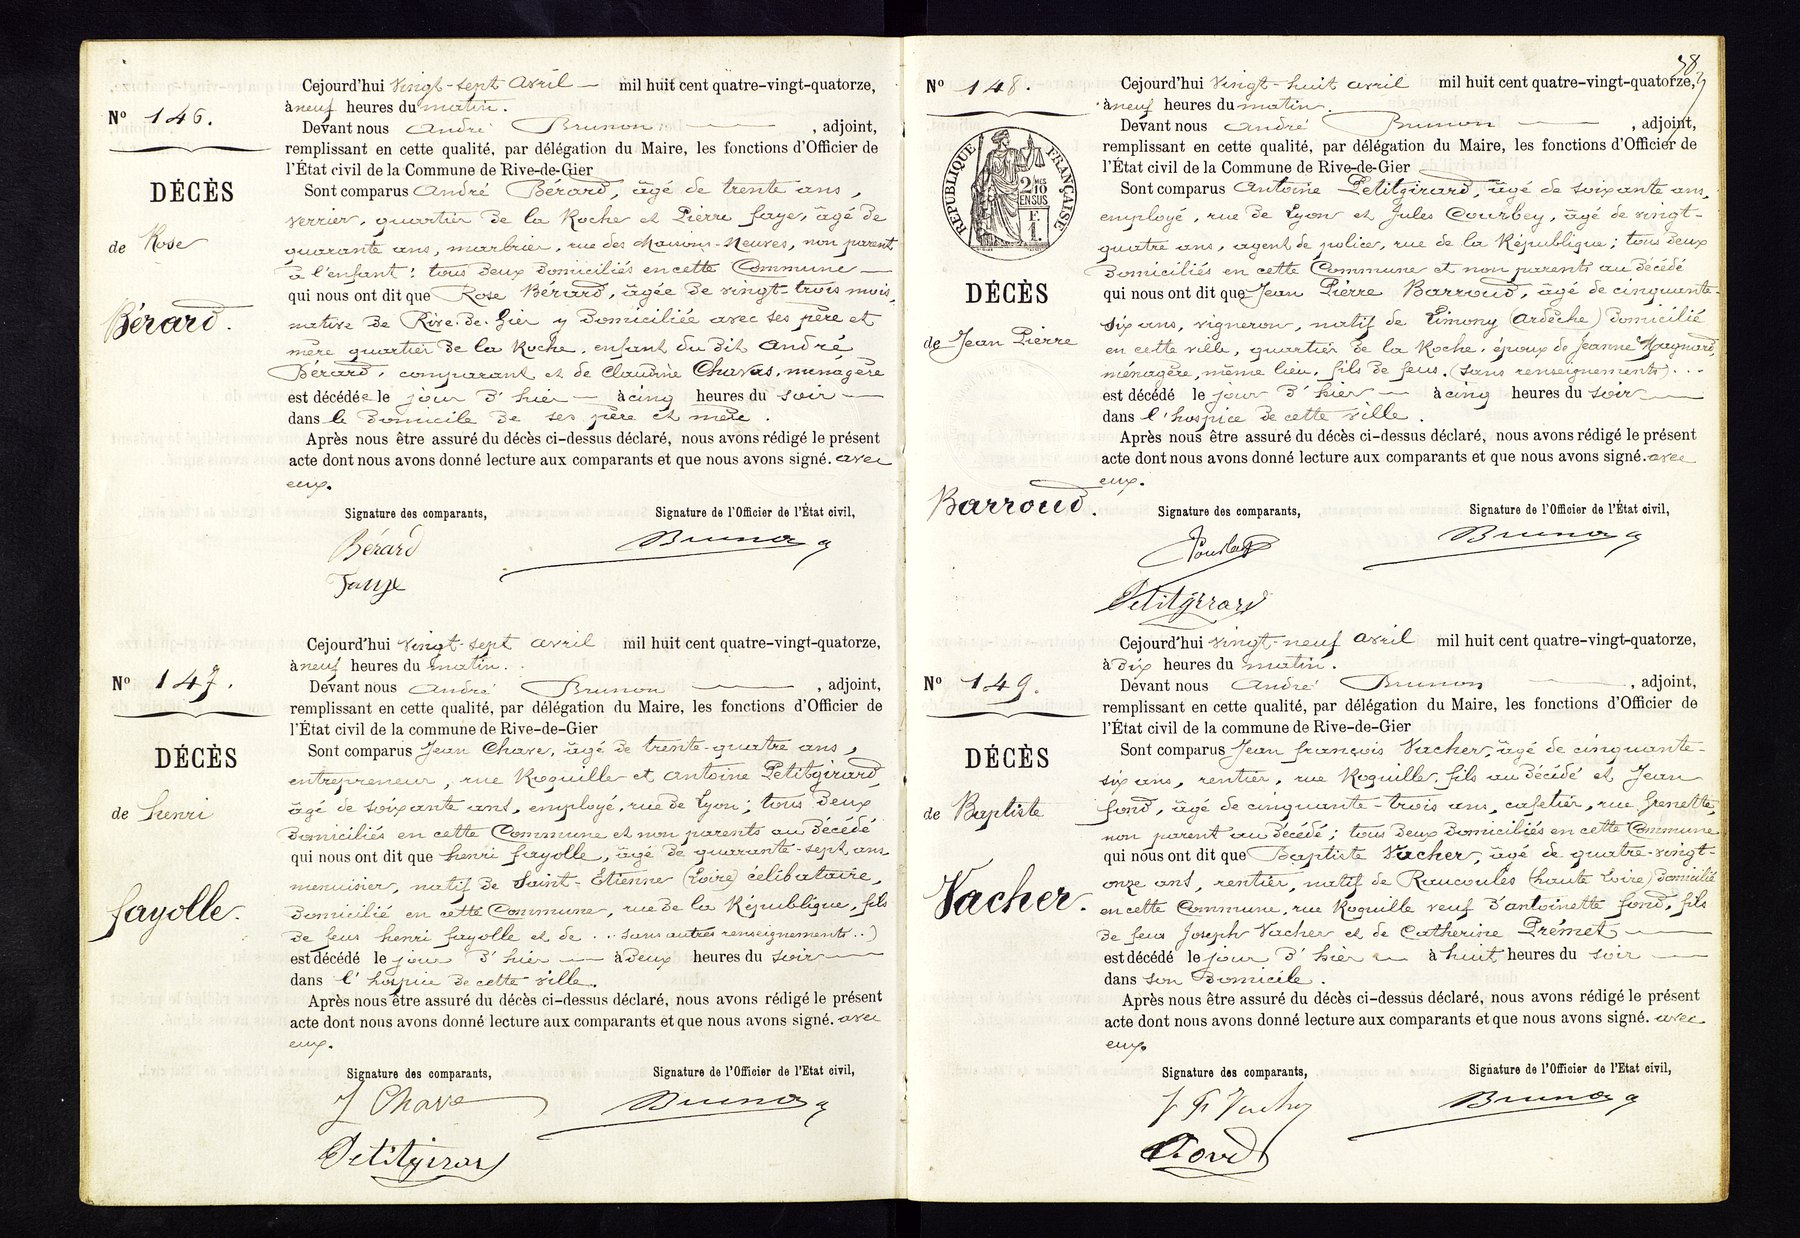 Nº 146.
DÉCÈS
de Rose
Bérard.
Cejourd'hui vingt-sept avril mil huit cent quatre-vingt-quatorze,
à neuf heures du matin.
Devant nous André Brunon, adjoint,
remplissant en cette qualité, par délégation du Maire, les fonctions d'Officier de
l'État civil de la Commune de Rive-de-Gier
Sont comparus André Bérard, âgé de trente ans,
verrier, quartier de la Roche et Pierre faye, âgé de
quarante ans, marbrier, rue des Maisons-Neuves, non parent
à l'enfant; tous deux domiciliés en cette Commune
qui nous ont dit que Rose Bérard, âgée de vingt-trois mois,
native de Rive-de-Gier y domiciliée avec ses père et
mère quartier de la Roche, enfant du dit André
Bérard, comparant et de Claudine Chavas, ménagère
est décédée le jour d'hier à cinq heures du soir
dans le domicile de ses père et mère.
Après nous être assuré du décès ci-dessus déclaré, nous avons rédigé le présent
acte dont nous avons donné lecture aux comparants et que nous avons signé. avec
eux.
Signature des comparants, Signature de l'Officier de l'État civil,
Bérard Brunon
Faye
Nº 147.
DÉCÈS
de henri
fayolle.
Cejourd'hui vingt-sept avril mil huit cent quatre-vingt-quatorze,
à neuf heures du matin.
Devant nous André Brunon, adjoint,
remplissant en cette qualité, par délégation du Maire, les fonctions d'Officier de
l'État civil de la commune de Rive-de-Gier
Sont comparus Jean Chave, âgé de trente-quatre ans,
entrepreneur, rue Roquille et antoine Petitgirard,
âgé de soixante ans, employé, rue de Lyon; tous deux
domiciliés en cette Commune et non parents au décédé
qui nous ont dit que henri fayolle, âgé de quarante-sept ans
menuisier, natif de Saint-Etienne (Loire) célibataire,
domicilié en cette Commune, rue de la République, fils
de feus henri fayolle et de .. sans autres renseignements..)
est décédé le jour d'hier à deux heures du soir
dans l'hospice de cette ville.
Après nous être assuré du décès ci-dessus déclaré, nous avons rédigé le présent
acte dont nous avons donné lecture aux comparants et que nous avons signé. avec
eux.
Signature des comparants, Signature de l'Officier de l'État civil,
J Chave Brunon
Petitgirard
Nº 148.
RÉPUBLIQUE FRANÇAISE
2 10
EN SUS
F.
1.
DÉCÈS
de Jean Pierre
Barroud.
Cejourd'hui vingt-huit avril mil huit cent quatre-vingt-quatorze,
à neuf heures du matin.
Devant nous André Brunon, adjoint,
remplissant en cette qualité, par délégation du Maire, les fonctions d'Officier de
l'État civil de la Commune de Rive-de-Gier
Sont comparus Antoine Petitgirard, âgé de soixante ans,
employé, rue de Lyon et Jules Courbey, âgé de vingt-
quatre ans, agent de police, rue de la République; tous deux
domiciliés en cette Commune et non parents au décédé
qui nous ont dit que Jean Pierre Barroud, âgé de cinquante-
six ans, vigneron, natif de Limony (Ardèche) domicilié
en cette ville, quartier de la Roche, époux de Jeanne Magnard,
ménagère, même lieu, fils de feus. (sans renseignements)...
est décédé le jour d'hier à cinq heures du soir
dans l'hospice de cette ville.
Après nous être assuré du décès ci-dessus déclaré, nous avons rédigé le présent
acte dont nous avons donné lecture aux comparants et que nous avons signé. avec
eux.
Signature des comparants, Signature de l'Officier de l'État civil,
Courbey Brunon
Petitgirard
Nº 149.
DÉCÈS
de Baptiste
Vacher.
Cejourd'hui vingt-neuf avril mil huit cent quatre-vingt-quatorze,
à dix heures du matin.
Devant nous André Brunon, adjoint,
remplissant en cette qualité, par délégation du Maire, les fonctions d'Officier de
l'État civil de la commune de Rive-de-Gier
Sont comparus Jean françois Vacher, âgé de cinquante-
six ans, rentier, rue Roquille, fils au décédé et Jean
fond, âgé de cinquante-trois ans, cafetier, rue Grenette,
non parent au décédé; tous deux domiciliés en cette Commune
qui nous ont dit que Baptiste Vacher, âgé de quatre-vingt-
onze ans, rentier, natif de Raucoules (haute Loire) domicilié
en cette Commune, rue Roquille veuf d'antoinette fond, fils
de feus Joseph Vacher et de Catherine Prémet
est décédé le jour d'hier à huit heures du soir
dans son domicile.
Après nous être assuré du décès ci-dessus déclaré, nous avons rédigé le présent
acte dont nous avons donné lecture aux comparants et que nous avons signé. avec
eux.
Signature des comparants, Signature de l'Officier de l'État civil,
J F Vacher Brunon
Fond